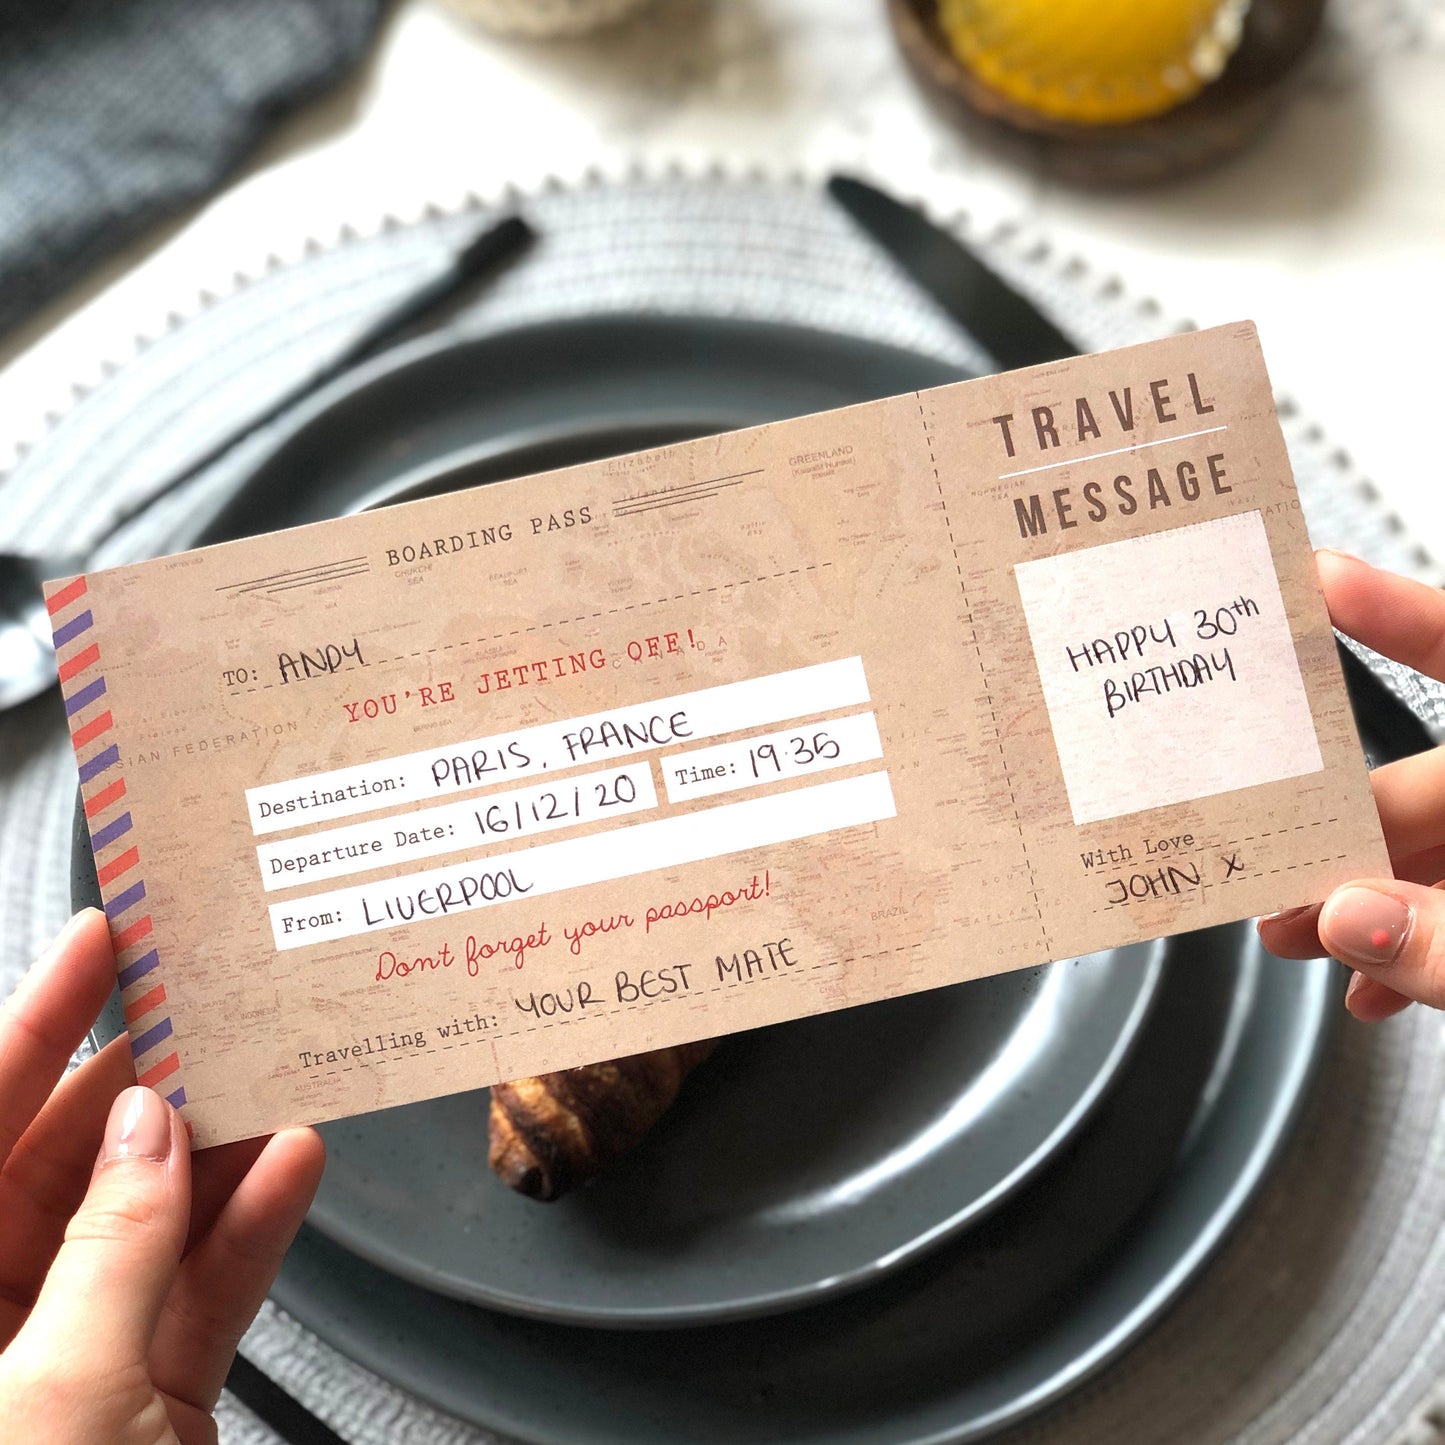 BOARDING PASS
TO: ANDY
YOU'RE JETTING OFF!
Destination: PARIS, FRANCE
Departure Date: 16/12/20
Time: 19.35
From: LIVERPOOL
Don't forget your passport!
Travelling with: YOUR BEST MATE
TRAVEL
MESSAGE
HAPPY 30th
BIRTHDAY
With Love
JOHN X
GREENLAND
CANADA
BRAZIL
AUSTRALIA
INDONESIA